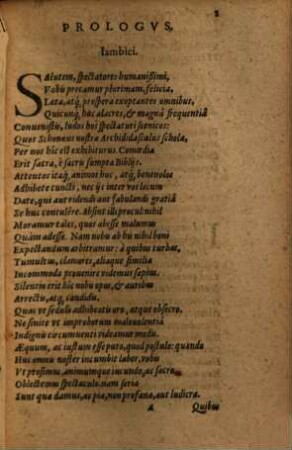 PROLOGVS,
Iambici.
SAlutem, spectatores humanißimi,
Vobis precamur plurimam, felicia,
Læta, atq́; prospera exoptantes omnibus,
Quicunq́; huc alacres, & magna frequentia
Convenistis, ludos hos spectaturi scenicos:
Quos Scholæ nostra Archididascalus schola,
Per nos hîc est exhibiturus. Comœdia
Erit sacra, è sacris sumpta Biblijs.
Attentos itaq́; animos huc, atq́; benevolos
Adhibete cuncti, nec ijs inter vos locum
Date, qui aut ridendi aut fabulandi gratia
Se huc contulêre. Absint illi procul: nihil
Moramur tales, quos abesse malumus
Quàm adesse. Nam nobis ab his nihil boni
Expectandum arbitramur: à quibus turbas,
Tumultus, clamores, aliaque similia
Incommoda provenire videmus sæpius.
Silentio erit hîc nobis opus, & auribus
Arrectis, atq́; candidis.
Quas vt sedulò adhibeatis oro, atque obsecro,
Ne sinite vt improborum malevolentia
Indignis circumventi videamur modis.
Æquum, ac iustum esse puto, quod postulo: quando
Huc omnis noster incumbit labor, vobis
Vt prosimus, animumque iucundo, ac sacro
Oblectemus spectaculo. nam seria
Sunt quæ damus, ac pia, non profana, aut ludicra.
A Quibus